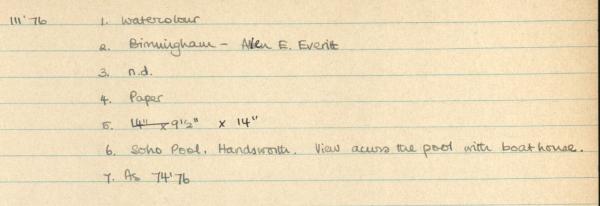 111'76 1. Watercolour
2. Birmingham - Allen E. Everitt
3. n.d.
4. Paper
5. 14" x 9½" x 14"
6. Soho Pool, Handsworth. View across the pool with boathouse.
7. As 74'76